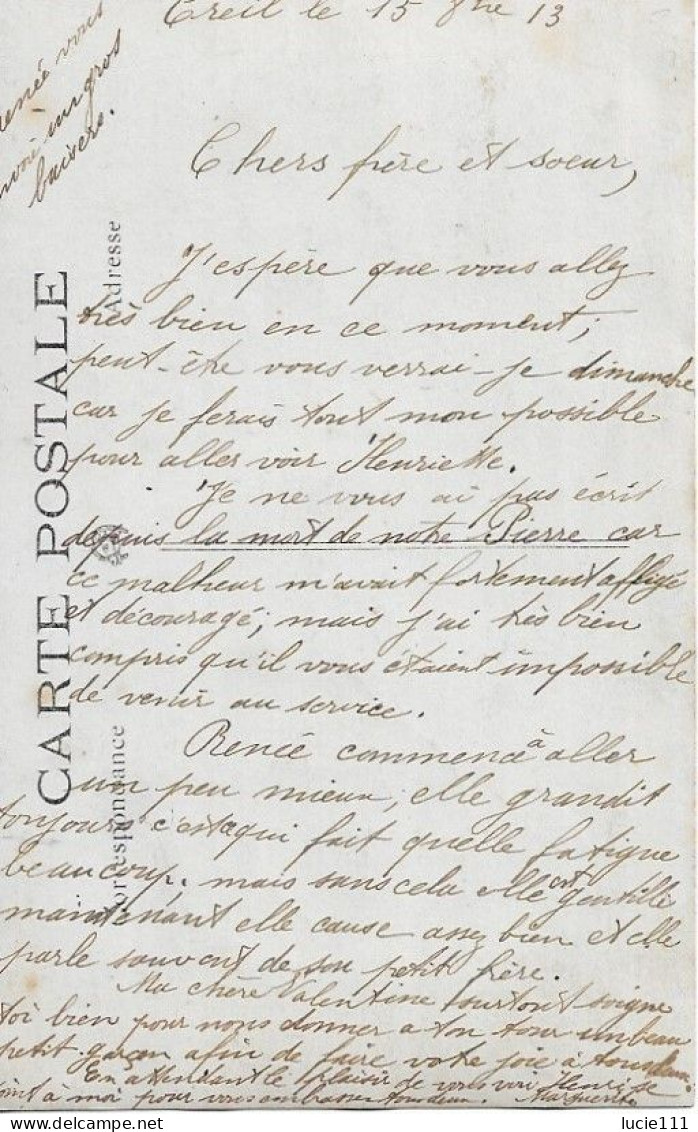 Creil le 15 8bre 13
Renée vous
envoie un gros
baisers.
Chers frère et soeur,
J'espère que vous allez
très bien en ce moment;
peut-être vous verrai-je dimanche
car je ferais tout mon possible
pour aller voir Henriette.
Je ne vous ai pas écrit
depuis la mort de notre Pierre car
ce malheur m'avait fortement affligé
et découragé; mais j'ai très bien
compris qu'il vous étaient impossible
de venir au service.
Renée commence à aller
un peu mieux, elle grandit
toujours c'est ce qui fait quelle fatigue
beaucoup. mais sans cela elle est gentille
maintenant elle cause assez bien et elle
parle souvent de son petit frère.
Ma chère Valentine surtout soigne
toi bien pour nous donner a ton tour un beau
petit garçon afin de faire votre joie à tous deux
En attendant le plaisir de vous voir Henri se
joint à moi pour vous embrasser tous deux. Marguerite
CARTE POSTALE
Correspondance
Adresse
delcampe.net
lucie111